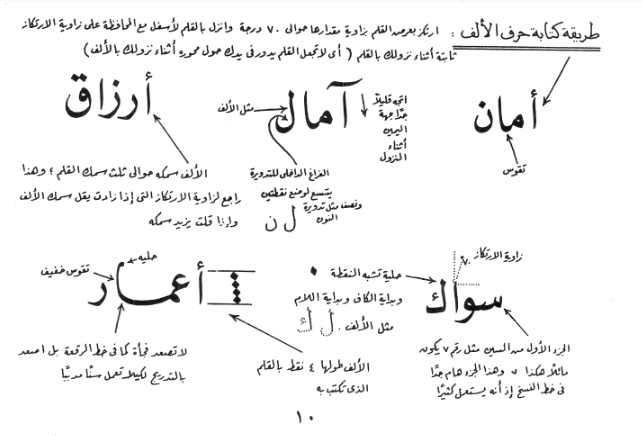 طريقة كتابة حرف الألف : ارتكز بعرض القلم بزاوية مقدارها حوالى ٧٠ درجة وانزل بالقلم لأسفل مع المحافظة على زاوية الارتكاز
ثابتة أثناء نزولك بالقلم ( أى لا تجعل القلم يدور فى يدك حول محوره أثناء نزولك بالألف )
أمان
تقوس
آمال
اتجه قليلاً
جدًا جهة
اليمين
أثناء
النزول
مثل الألف
الفراغ الداخلى للتدويرة
يتسع لوضع نقطتين
ونصف مثل تدويرة
النون
ل ن
أرزاق
الألف سمكه حوالى ثلث سمك القلم ؛ وهذا
راجع لزاوية الارتكاز التى إذا زادت يقل سمك الألف
وإذا قلت يزيد سمكه
زاوية الارتكاز
٧٠
سواك
حلية تشبه النقطة
وبداية الكاف وبداية اللام
مثل الألف . ل ك
الجزء الأول من السين مثل رقم ٧ يكون
مائلاً هكذا ٧ وهذا الجزء هام جدًا
فى خط النسخ إذ أنه يستعمل كثيرًا
أعمار
حليه
تقوس خفيف
الألف طولها ٤ نقط بالقلم
الذى تكتب به
لا تصعد فجأة كما فى خط الرقعة بل اصعد
بالتدريج لكيلا تعمل سنًا مدببًا
١٠